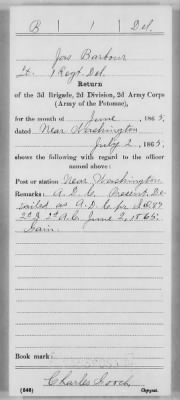 B | 1 | Del.
Jas Barbour
Lt., 1 Regt. Del.
Return
of the 3d Brigade, 2d Division, 2d Army Corps
(Army of the Potomac),
for the month of June, 1865,
dated Near Washington
July 2, 1865,
shows the following with regard to the officer
named above:
Post or station Near Washington
Remarks: A. D. C. Present. De
tailed as A. D. C. pr S.O. 87
2d D 2d A.C. June 2, 1865.
Gain.
Book mark:
Charles Gooch
(848) Copyist.